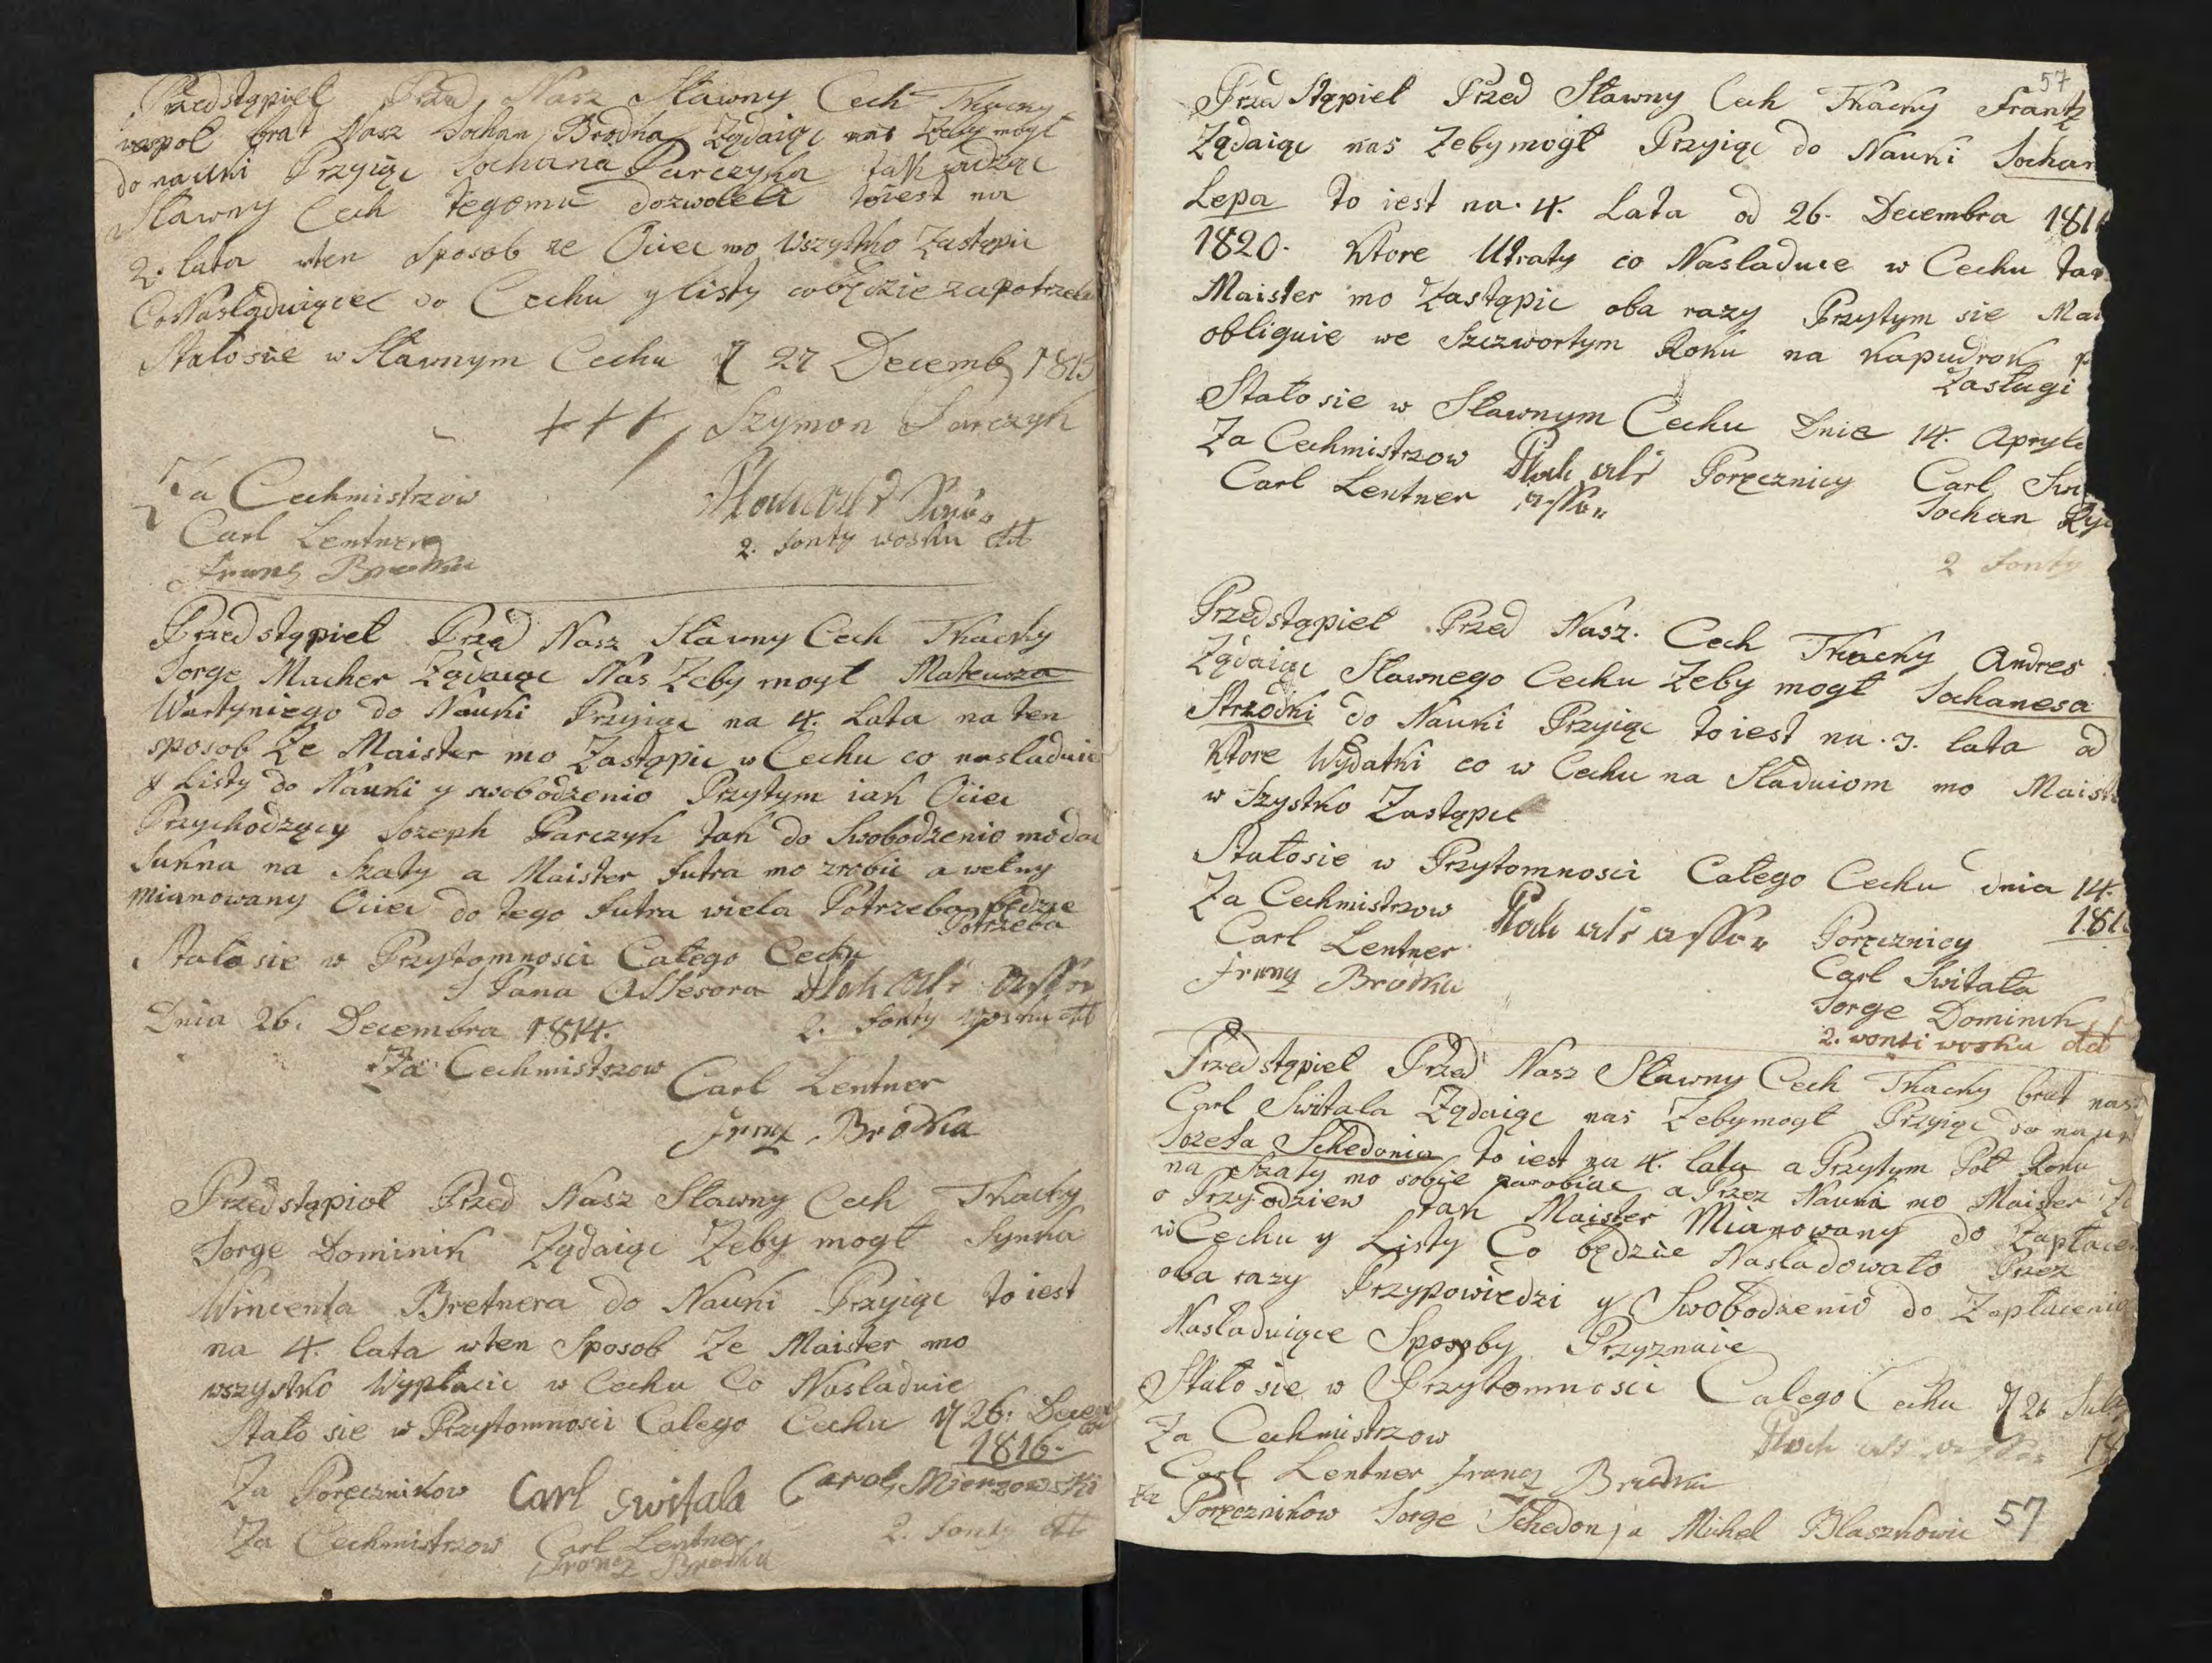 Przedstąpieł Przed Nasz Sławny Cech Tkacky
wespol brat Nasz Johan Brodka Ządaiąc nas Zeby mogł
do nauki Przyiąc Johana Parczyka tak widząc
Sławny Cech tegomu dozwoleł toiest na
2. lata wten Sposob ze Ociec mo Wszystko Zastąpic
Co Nasladuiącec do Cechu y listy co będzie zapotrzeba
Stałosie w Sławnym Cechu d 27 Decemb 1815
+++ Szymon Parczyk
Za Cechmistrzow
Carl Lentner
Franz Brodka
2. fonty wosku dt
Przedstąpieł Przed Nasz Sławny Cech Tkacky
Jorge Macher Ządaiąc Nas Zeby mogł Mateusza
Wartyniego do Nauki Przyiąc na 4. Lata na ten
sposob Ze Maister mo Zastąpic w Cechu co nasladuie
y Listy do Nauki y swobodzenio Przytym iak Ociec
Przychodzący Jozeph Parczyk tak do Swobodzenio mo dac
Sukna na Szaty a Maister futra mo zrobic a wełny
mianowany Ociec do tego futra wiela Potrzeba będzie
Potrzeba
Stałosie w Przytomnosci Całego Cechu
J Pana Assesora
Dnia 26. Decembra 1814.
2. fonty wosku dt
Za Cechmistrzow
Carl Lentner
Franz Brodka
Przedstąpioł Przed Nasz Sławny Cech Tkacky
Jorge Dominik Ządaiąc Zeby mogł Synka
Wincenta Bretnera do Nauki Przyiąc to iest
na 4. lata wten Sposob Ze Maister mo
wszystko Wypłacic w Cechu Co Nasladuie
Stało sie w Przytomnosci Całego Cechu d 26. Decem
1816.
Za Poręcznikow Carl Switala Carol Mierzowski
Za Cechmistrzow Carl Lentner
Francz Brodka
2. fonty dt
57
Przed Stąpieł Przed Sławny Cech Tkacky Frantz
Ządaiąc nas Zeby mogł Przyiąc do Nauki Johan
Lepa to iest na. 4. Lata od 26. Decembra 181
1820. Ktore Utraty co Nasladuie w Cechu tak
Maister mo Zastąpic oba razy Przytym sie Mai
obliguie we Szczwortym Roku na kapudrok p
Zasługi
Stało sie w Sławnym Cechu Dnia 14. Apryla
Za Cechmistrzow Poręcznicy Carl Swi
Carl Lentner Johan
2 fonty
Przedstąpieł Przed Nasz. Cech Tkacky Andres
Ządaiąc Sławnego Cechu Zeby mogł Johanesa
Strzodki do Nauki Przyiąc toiest na. 3. lata od
Ktore Wydatki co w Cechu na Sladuiom mo Maist
w Szystko Zastąpic
Stałosie w Przytomnosci Całego Cechu dnia 14.
181
Za Cechmistrzow Poręcznicy
Carl Lentner Carl Switała
Franz Brodka Jorge Dominik
2. vonti vosku dt
Przedstąpieł Przed Nasz Sławny Cech Tkacky brat nas
Carl Switala Ządaiąc nas Zebymogł Przyiąc do nauk
Jozefa Schedonia to iest na 4. lata a Przytym Poł Roku
na Szaty mo sobie zarobiac a Przez Nauki mo Maister
o Przyodziew tak Maister Mianowany do Zapłacen
w Cechu y Listy Co będzie Nasladowało Przez
oba razy Przypowiedzi y Swobodzenio do Zapłacenio
Nasladuiące Sposoby Przyznaie
Stało sie w Przytomnosci Całego Cechu d 26 July
18
Za Cechmistrzow
Carl Lentner Francz Brodka
Za Poręcznikow Jorge Schedonja Michel Blaszkowic
57